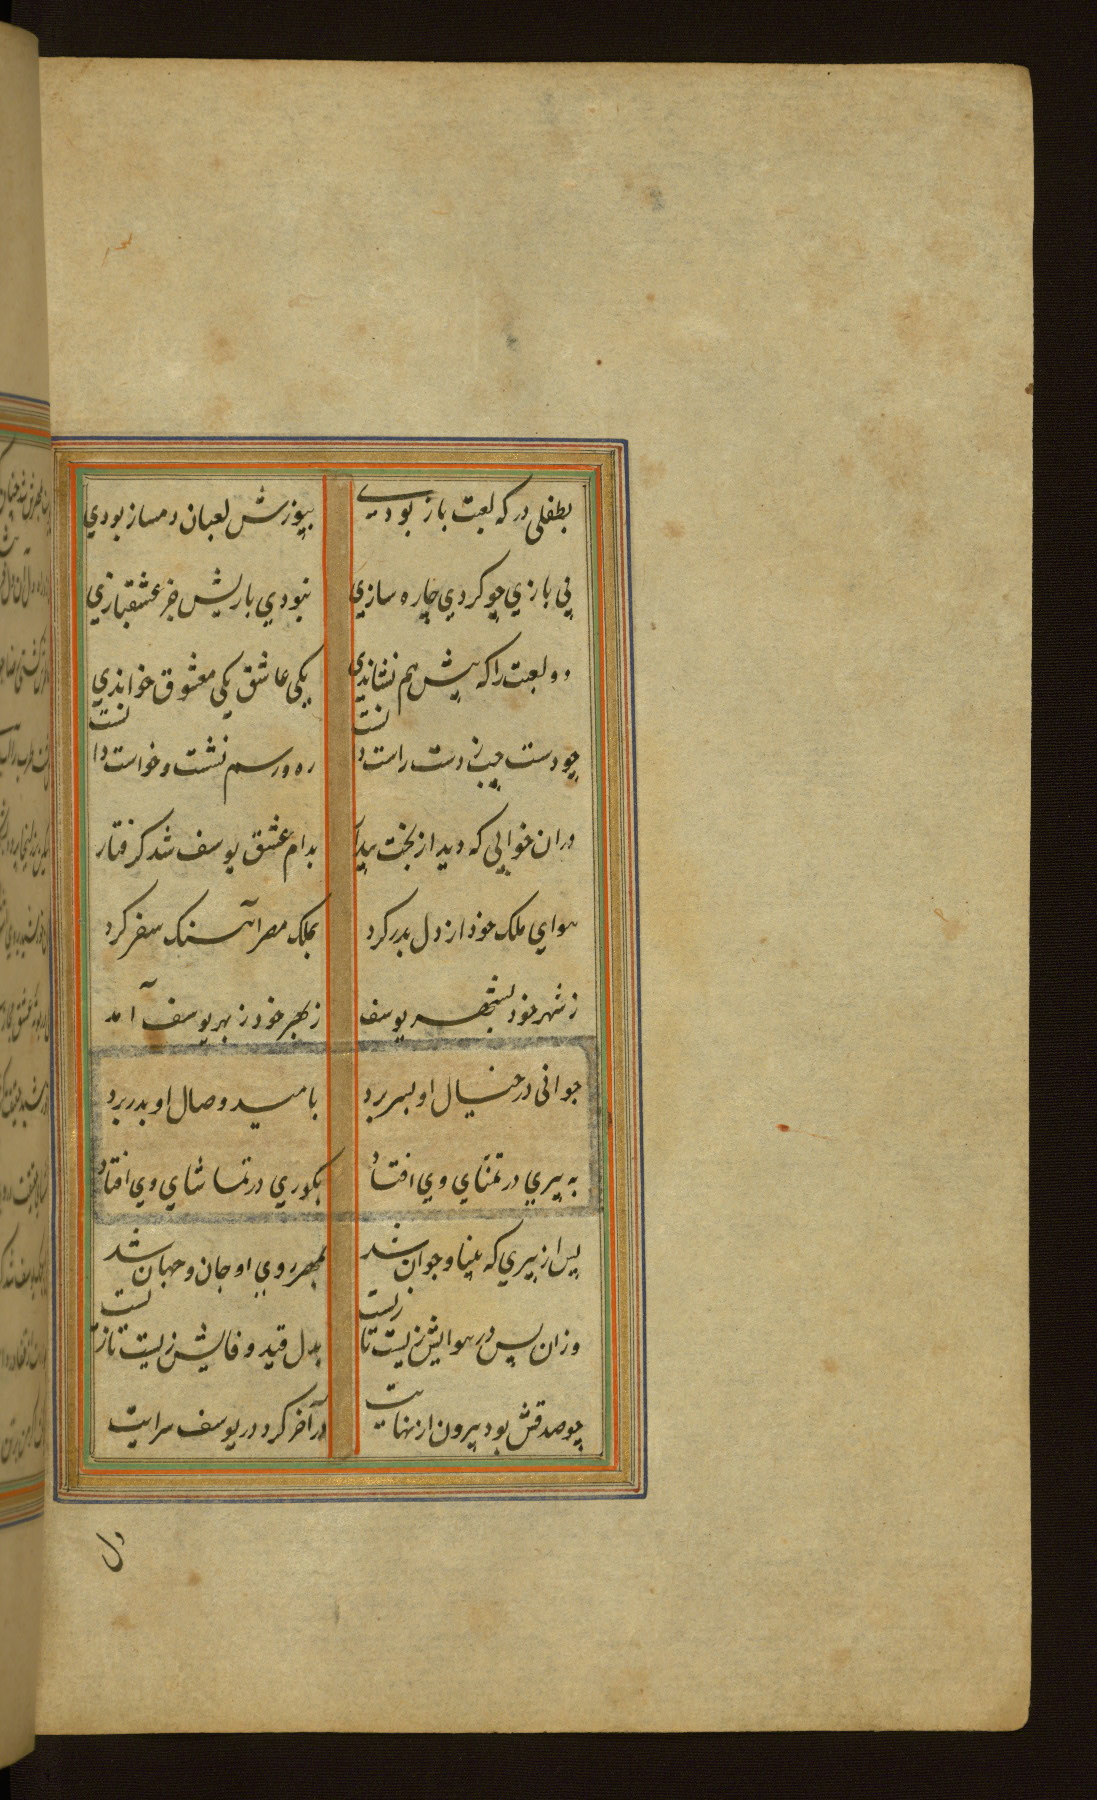 بطفلی در که لعبت باز بودی بپوزش لعبان دمساز بودی
پی بازی چو کردی چاره سازی نبودی بازیش جز عشقبازی
دو لعبت را که پیش هم نشاندی یکی عاشق یکی معشوق خواندی
چو دست چپ ز دست راست دانست ره و رسم نشست و خواست دانست
در ان خوابی که دید از بخت بیدار بدام عشق یوسف شد کرفتار
هوای ملک خود از دل بدر کرد بملک مصر آهنک سفر کرد
ز شهر خود بشهر یوسف آمد ز بهر خود ز بهر یوسف آمد
جوانی در خیال او بسر برد بامید وصال او بدر برد
به پیری در تمنای وی افتاد بکوری در تماشای وی افتاد
پس از پیری که بینا و جوان شد بمهر روی او جان و جهان شد
وزان پس در هوایش زیست تا زیست بدل قید وفایش زیست تا زیست
چو صدقش بود بیرون از نهایت در آخر کرد در یوسف سرایت
دل